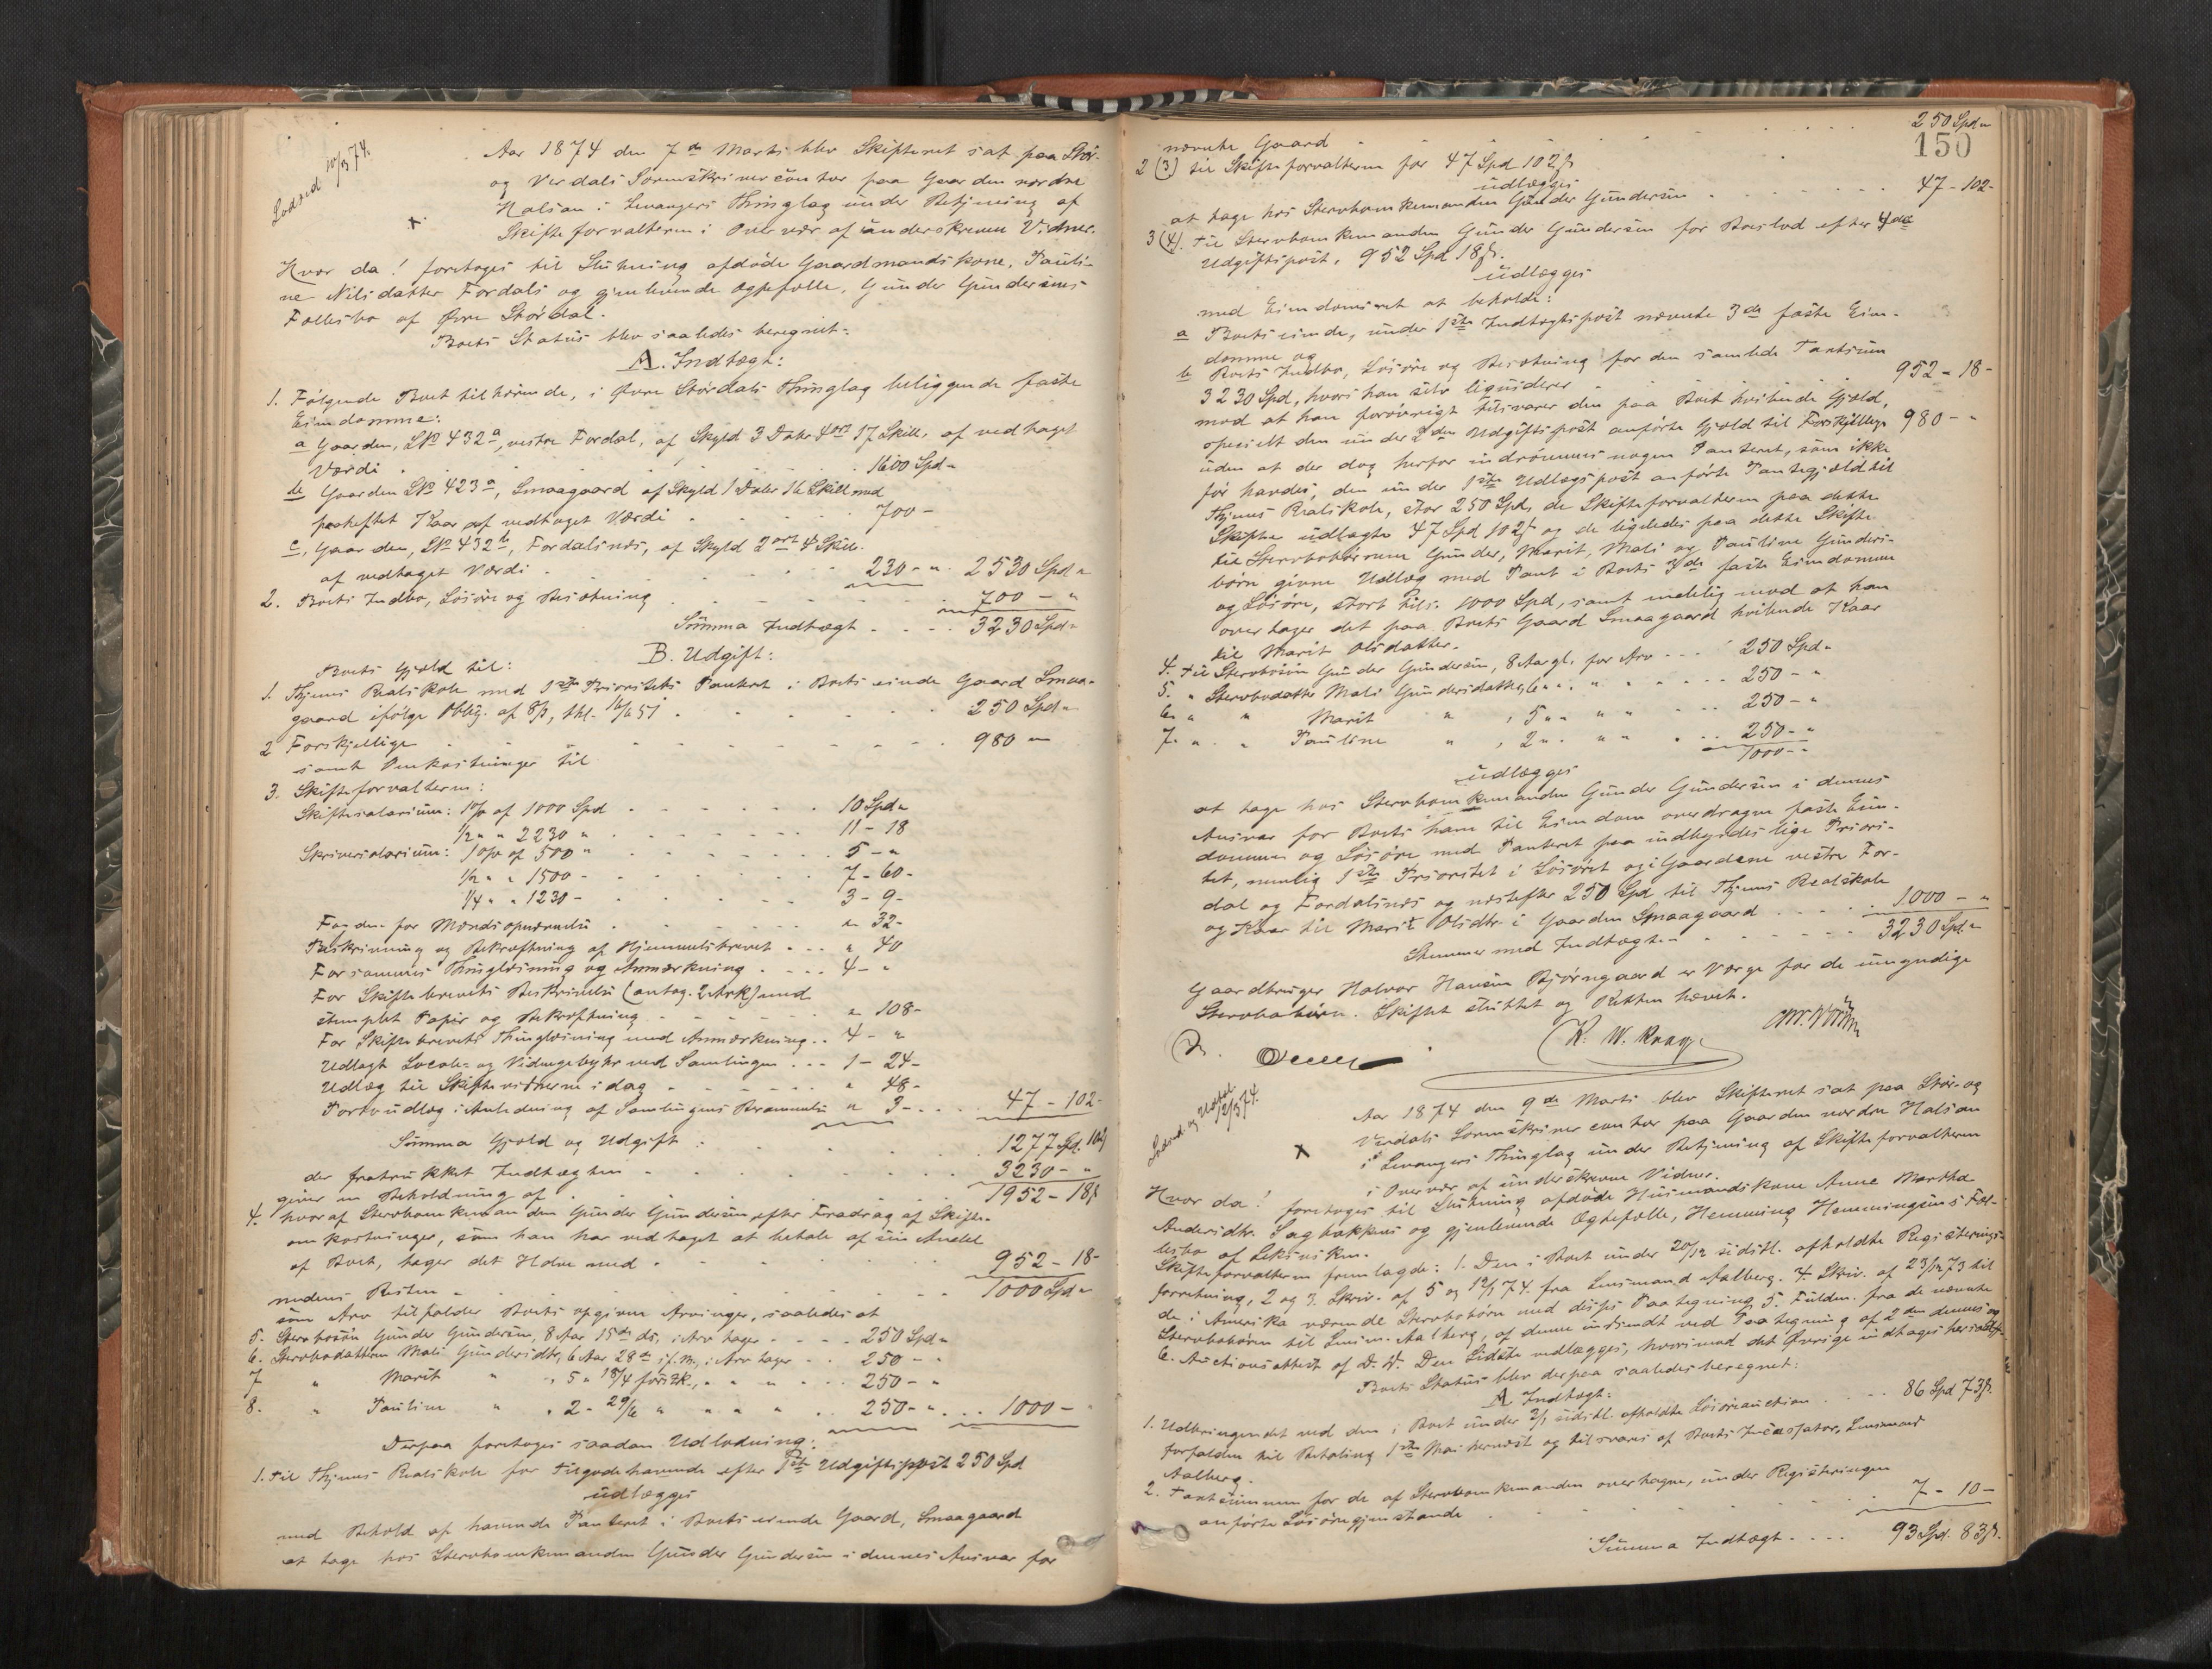 Lodsed 10/3 74.
Aar 1874 den 7de Marts blev Skifteret sat paa Stør-
og Værdals Sorenskrivercontor paa Gaarden nordre
Halsan i Levangers Thinglag under Betjening af
Skifteforvalteren i Overvær af underskrevne Vidner.
Hvor da! foretoges til Slutning afdøde Gaardmandskone, Pauli-
ne Nilsdatter Fordals og gjenlevende Ægtefælle, Gunder Gundersens
Fællesbo af Øvre Stördal.
Boets Status blev saaledes beregnet:
A. Indtægt:
1. Følgende Boet tilhørende, i Øvre Stördals Thinglag beliggende faste
Eiendomme:
a Gaarden, LNo 432a, vestre Fordal, af Skyld 3 Daler 4 ort 17 Skill, af vedtaget
Værdi . . . 1600 Spd "
b Gaarden LNo 423a, Smaagaard af Skyld 1 Daler 16 Skill med
paaheftet Kaar af vedtaget Værdi . . . 700 -
c, Gaarden, LNo 432b, Fordalsnæs, af Skyld 2 ort 4 Skill.
af vedtaget Værdi . . . 230 - " 2530 Spd "
2. Boets Indbo, Løsøre og Besætning . . . 700 - "
Summa Indtægt . . . 3230 Spd "
B. Udgift:
Boets Gjæld til:
1. Thjems Realskole med 1ste Prioritets Panteret i Boets eiende Gaard Smaa-
gaard ifølge Oblig. af 8/3, thl. 16/6 51 . . . 250 Spd "
2 Forskjellige . . . 980 "
samt Omkostninger til
3. Skifteforvalteren:
Skiftesalarium: 1 % af 1000 Spd . . . 10 Spd "
1/2 " " 2230 " . . . 11 - 18
Skriversalarium: 1 % af 500 " . . . 5 - "
1/2 " " 1500 - . . . 7 - 60 -
1/4 " " 1230 - . . . 3 - 9 -
For do. for Mandsopnævnelse . . . " 32 -
Beskrivning og Bekræftning af Hjemmelsbrevet . . . " 40
For sammes Thinglæsning og Anmærkning . . . 4 - "
For Skiftebrevets Beskrivelse (antag. 2 Ark) med
stemplet Papir og Bekræftning . . . " 108 -
For Skiftebrevets Thinglæsning med Anmærkning . . 4 - "
Udlagt Locale- og Vidnegebyhr ved Samlingen . . . 1 - 24 -
Udlæg til Skiftevidnerne i dag . . . " 48 -
Portoudlæg i Anledning af Samlingens Berammelse " 3 - . . . 47 - 102 -
Summa Gjæld og Udgift . . . 1277 Spd. 102
der fratrukket Indtægten . . . 3230 - "
giver en Beholdning af . . . 1952 - 18 β
4. hvoraf Stervboenkemanden Gunder Gundersen efter Fradrag af Skifte-
omkostninger, som han har vedtaget at betale af sin Andel
af Boet, tager det Halve med . . . 952 - 18 -
medens Resten . . . 1000 Spd "
som Arv tilfalder Boets opgivne Arvinger, saaledes at
5. Stervbosøn Gunder Gundersen, 8 Aar 15de ds, i Arv tager . . . 250 Spd "
6. Stervbodatteren Mali Gundersdtr, 6 Aar 28de i f. M., i Arv tager . . 250 - "
7 " Marit " " 5 " 18/4 förstk., " " " . . . 250 - "
8. " Pauline " " 2 - 29/6 " " " " . . 250 - " . . . 1000 -
Derpaa foretoges saadan Udlodning:
1. Til Thjems Realskole for Tilgodehavende efter 1ste Udgiftspost 250 Spd
udlægges
med Behold af havende Panteret i Boets eiende Gaard, Smaagaard
at tage hos Stervboenkemanden Gunder Gundersen i dennes Ansvar for
nævnte Gaard . . . 250 Spd "
150
2 (3) til Skifteforvalteren for 47 Spd 102 β
udlægges
at tage hos Stervboenkemanden Gunder Gundersen . . . 47 - 102 -
3 (4). Til Stervboenkemanden Gunder Gundersen for Boeslod efter 4de
Udgiftspost, 952 Spd 18 β.
udlægges
med Eiendomsret at beholde:
a Boets eiende, under 1ste Indtægtspost nævnte 3de faste Eien-
domme og
b Boets Indbo, Løsøre og Besætning for den samlede Taxtsum
3230 Spd, hvori han selv liqviderer . . . 952 - 18 -
mod at han forøvrigt tilsvarer den paa Boet hvilende Gjæld,
specielt den under 2den Udgiftspost anførte Gjæld til Forskjellige 980 - "
uden at der dog herfor indrømmes nogen Panteret, som ikke
før havdes, den under 1ste Udlægspost anførte Pantegjæld til
Thjems Realskole, stor 250 Spd, de Skifteforvalteren paa dette
Skifte udlagte 47 Spd 102 β og de ligeledes paa dette Skifte
til Stervbobørnene Gunder, Marit, Mali og Pauline Gunders-
børn givne Udlæg med Pant i Boets 3de faste Eiendomme
og Løsøre, stort tils. 1000 Spd, samt endelig mod at han
overtager det paa Boets Gaard Smaagaard hvilende Kaar
til Marit Olsdatter.
4. Til Stervbosøn Gunder Gundersen, 8 Aar gl. for Arv . . . 250 Spd "
5. " Stervbodatter Mali Gundersdatter, 6 " " " " . . . 250 - "
6. " " Marit " , 5 " " " " . . . 250 - "
7. " " Pauline " , 2 " " " " . . 250 - "
1000 - "
udlægges
at tage hos Stervboenkemanden Gunder Gundersen i dennes
Ansvar for Boets ham til Eiendom overdragne faste Eien-
domme og Løsøre med Panteret paa indbyrdes lige Priori-
tet, nemlig 1ste Prioritet i Løsøret og i Gaardene vestre For-
dal og Fordalsnæs og næstefter 250 Spd til Thjems Realskole
og Kaar til Marit Olsdtr. i Gaarden Smaagaard . . . 1000 - "
Stemmer med Indtægten . . . 3230 Spd "
Gaardbruger Halvor Hansen Bjørngaard er Værge for de umyndige
Stervbobørn. Skiftet sluttet og Retten hævet.
K. W. Knagg
Lodsed. og Udtal. 12/3 74.
Aar 1874 den 9de Marts blev Skifteret sat paa Stør- og
Værdals Sorenskrivercontor paa Gaarden nordre Halsan
i Levangers Thinglag under Betjening af Skifteforvalteren
i Overvær af underskrevne Vidner.
Hvor da! foretoges til Slutning afdøde Huusmandskone Anne Martha
Andersdtr. Sagbakkens og gjenlevende Ægtefælle, Hemming Hemmingsens Fæl-
lesbo af Leksviken.
Skifteforvalteren fremlagde: 1. Den i Boet under 20/12 sidstl. afholdte Registerings-
forretning, 2 og 3. Skriv. af 5 og 12/1 74. fra Lensmand Aalberg. 4. Skriv. af 23/12 73 til
de i Amerika værende Stervbobørn med disses Paategning 5. Fuldm. fra de nævnte
Stervbobørn til Lensm. Aalberg, af denne indsendt ved Paategning af 2den dennes og
6. Auctionsattest af D. D. Den Sidste vedlægges, hvorimod det Øvrige indtages hersidst.
Boets Status blev derpaa saaledes beregnet:
A Indtægt:
1. Udbringendet ved den i Boet under 2/1 sidstl. afholdte Løsøreauction . . . 86 Spd 73 β.
forfalden til Betaling 1ste Mai hernæst og tilsvares af Boets Incassator, Lensmand
Aalberg.
2. Taxtsummen for de af Stervboenkemanden overtagne, under Registeringen
anførte Løsøregjenstande . . . 7 - 10 -
Summa Indtægt . . . 93 Spd. 83 β.